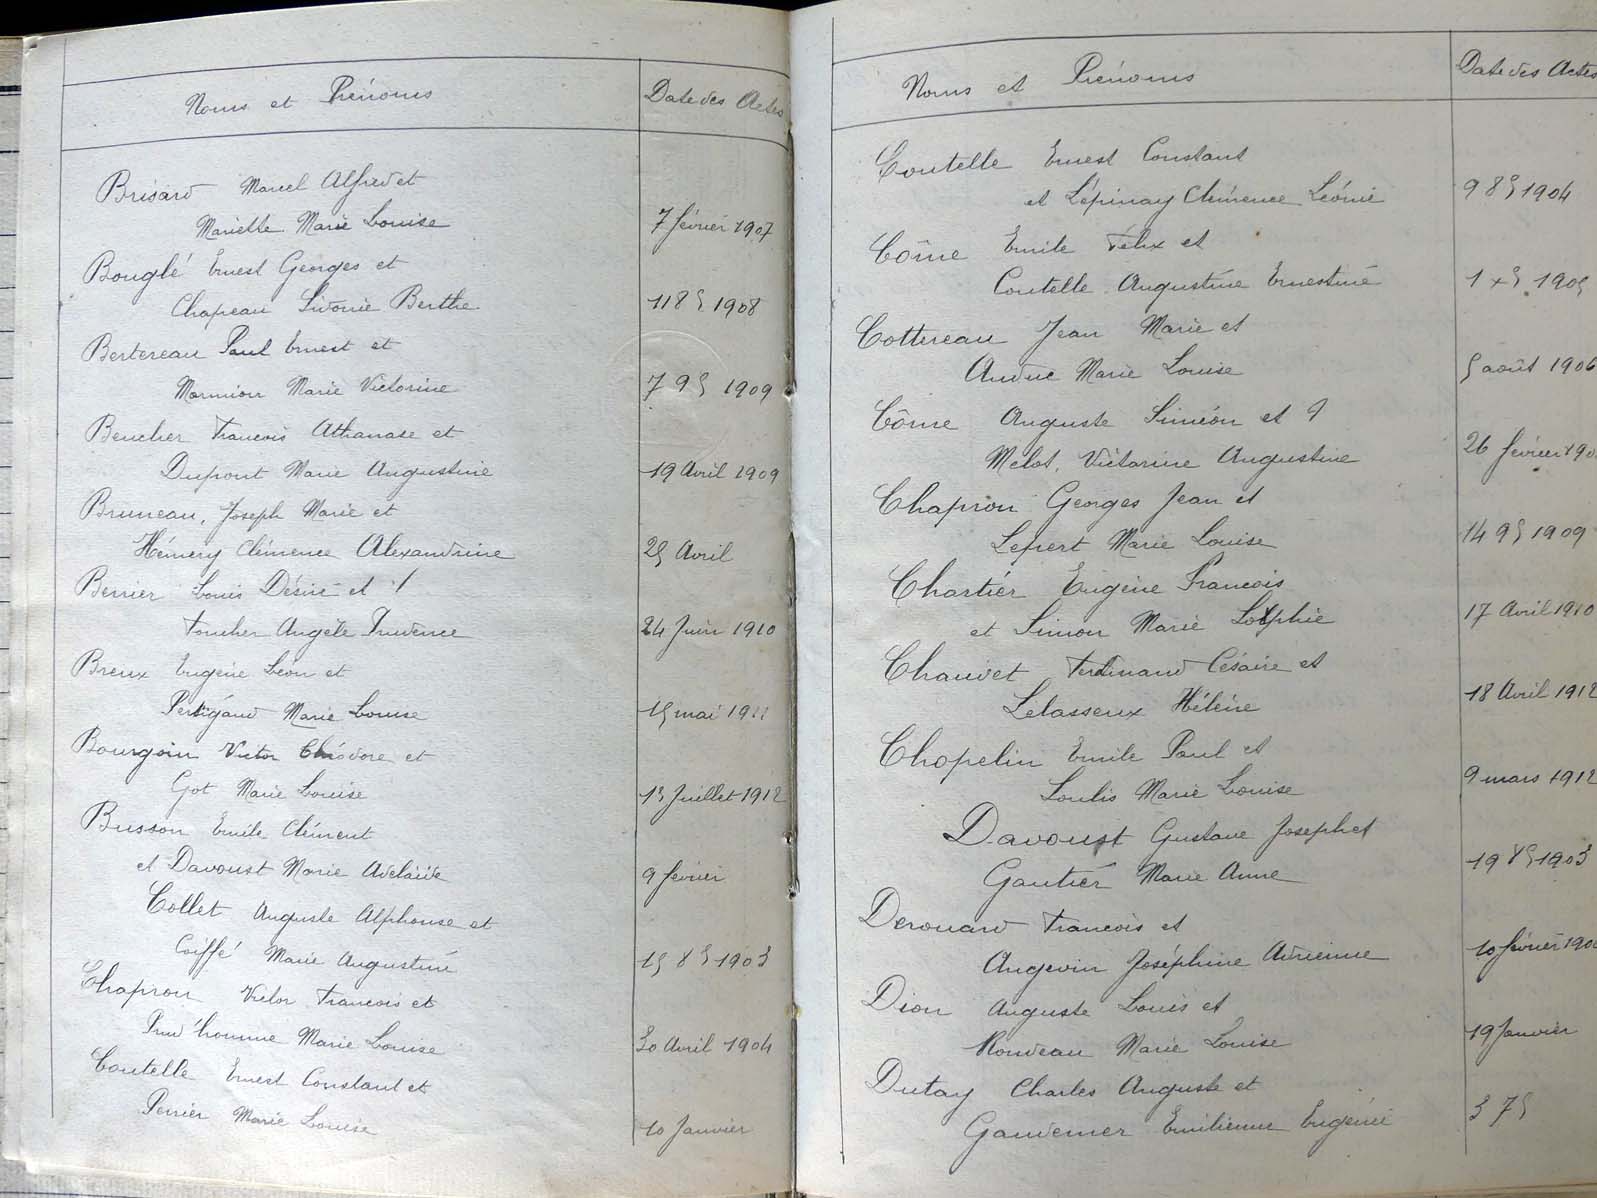 Noms et Prénoms
Date des Actes
Brisard Marcel Alfred et
Mariette Marie Louise
7 février 1907
Bouglé Ernest Georges et
Chapeau Sidonie Berthe
11 8§ 1908
Bertereau Paul Ernest et
Marmion Marie Victorine
7 9§ 1909
Beucher François Athanase et
Dupont Marie Augustine
19 Avril 1909
Bruneau, Joseph Marie et
Hémery Clémence Alexandrine
25 Avril
Berrier Louis Désiré et
Foucher Angèle Prudence
24 Juin 1910
Breux Eugène Léon et
Pertigaud Marie Louise
15 mai 1911
Bourgoin Victor Théodore et
Got Marie Louise
13 Juillet 1912
Busson Emile Clément
et Davoust Marie Adelaïde
9 février
Collet Auguste Alphonse et
Coiffé Marie Augustine
15 8§ 1903
Chapron Victor François et
Prud'homme Marie Louise
30 Avril 1904
Coutelle Ernest Constant et
Perrier Marie Louise
10 Janvier
Noms et Prénoms
Date des Actes
Coutelle Ernest Constant
et Lépinay Clémence Léonie
9 8§ 1904
Côme Emile Félix et
Coutelle Augustine Ernestine
1 x§ 1905
Cottereau Jean Marie et
Marie Louise
5 août 1906
Côme Auguste Siméon et
Melot, Victorine Augustine
26 février 190
Chapron Georges Jean et
Lepert Marie Louise
14 9§ 1909
Chartier Eugène François
et Simon Marie Sophie
17 Avril 1910
Chauvet Ferdinand Césaire et
Lelasseux Hélène
18 Avril 1912
Chopelin Emile Paul et
Loulis Marie Louise
9 mars 1912
Davoust Gustave Joseph et
Gautier Marie Anne
19 8§ 1903
Derouard François et
Angevin Joséphine Adrienne
10 février 190
Dion Auguste Louis et
Rondeau Marie Louise
19 Janvier
Dutay Charles Auguste et
Gaudemer Emilienne Eugénie
3 7§